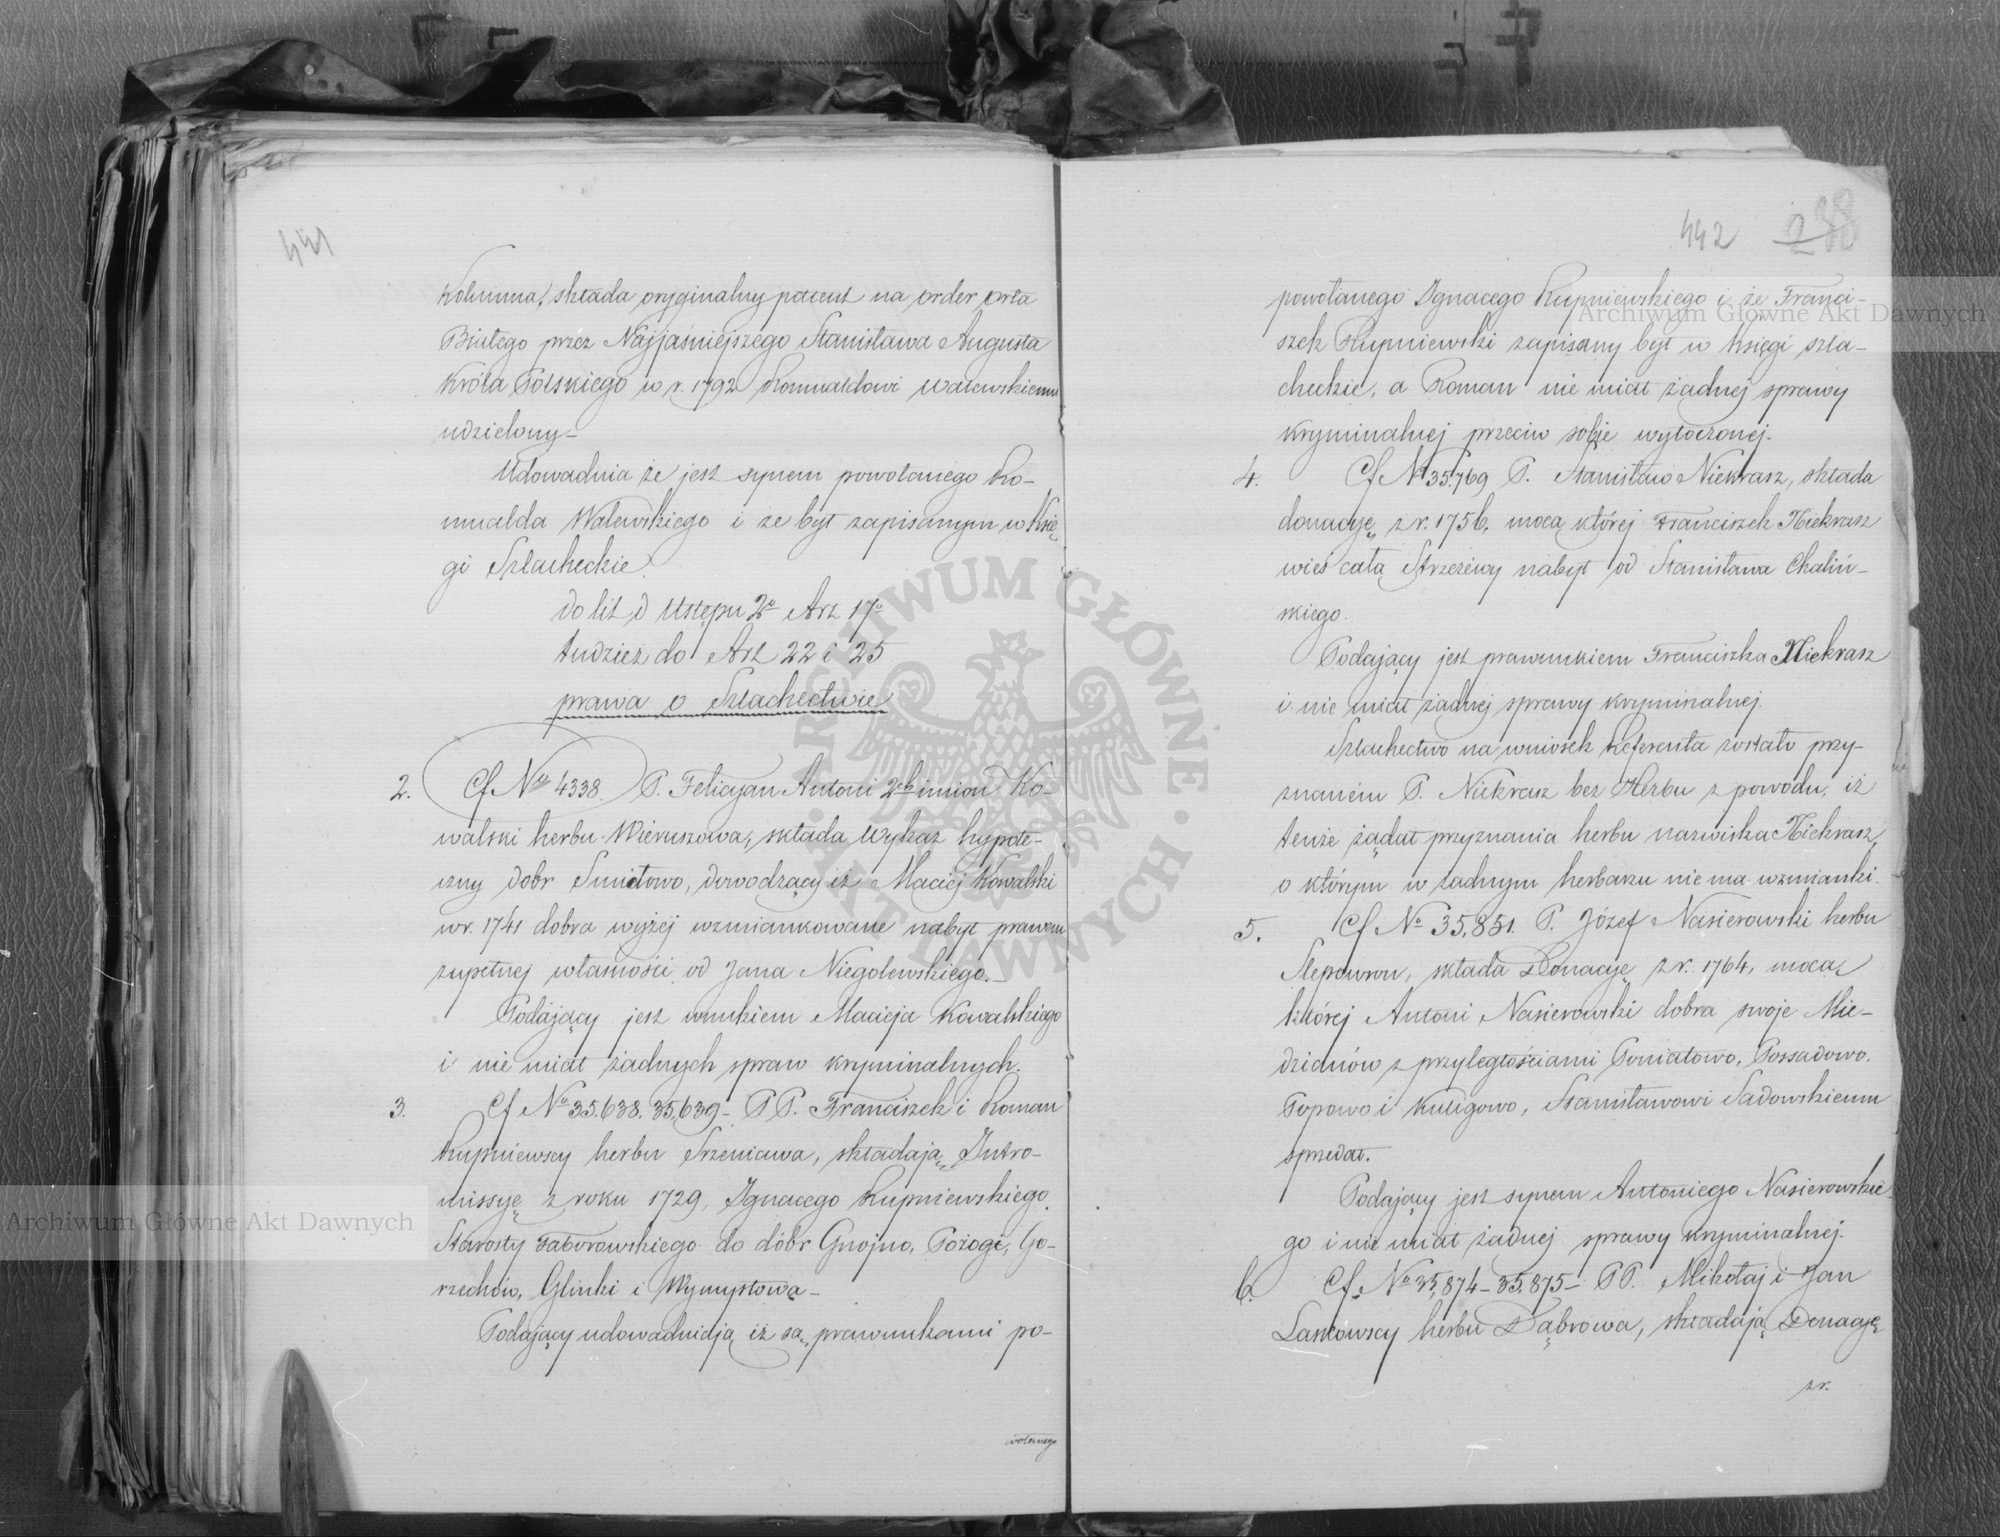 441
Kolumna, składa oryginalny patent na order orła
Białego przez Najjaśniejszego Stanisława Augusta
Króla Polskiego w r. 1792 Romualdowi Walewskiemu
udzielony_
Udowadnia że jest synem powołanego Ro-
mualda Walewskiego i ze był zapisanym w Księ-
gi Szlacheckie.
do lit D Ustępu 2º Art 17º
tudzież do Art 22 i 25
prawa o Szlachectwie
2. Cf Nº 4338. P. Felicyan Antoni 2ch imion Ko-
walski herbu Wieruszowa, składa Wykaz hypote-
czny dobr Smiełowo, dowodzący iż Maciej Kowalski
w r. 1741 dobra wyżej wzmiankowane nabył prawem
zupełnej własności od Jana Niegolewskiego._
Podający jest wnukiem Macieja Kowalskiego
i nie miał żadnych spraw kryminalnych.
3. Cf Nº 35.638. 35,639_ PP. Franciszek i Roman
Rupniewscy herbu Srzeniawa, składają Intro-
missyę z roku 1729, Ignacego Rupniewskiego
Starosty Taborowskiego do dóbr Gnojno, Pożogi, Go-
rzechów, Glinki i Wymysłowa_
Podający udowadniają iż są prawnukami po-
wołanego
442 238
powołanego Ignacego Rupniewskiego i że Franci-
szek Rupniewski zapisany był w Księgi szla-
checkie, a Roman nie miał żadnej sprawy
kryminalnej przeciw sobie wytoczonej.
4. Cf Nº 35.769 P. Stanisław Niekrasz, składa
donacyę z r. 1756, mocą której Franciszek Niekrasz
wieś całą Strzeżewy nabył od Stanisława Chaliń-
skiego.
Podający jest prawnukiem Franciszka Niekrasz
i nie miał żadnej sprawy kryminalnej.
Szlachectwo na wniosek Referenta zostało przy-
znanem P. Niekrasz bez Herbu z powodu, iż
tenże żądał przyznania herbu nazwiska Niekrasz,
o którym w żadnym herbarzu nie ma wzmianki.
5. Cf Nº 35,851. P. Józef Nasierowski herbu
Slepowron, składa Donacyę z r. 1764, mocą
której Antoni Nasierowski dobra swoje Mie-
dzianów z przyległościami Poniatowo, Possadowo,
Popowo i Kuligowo, Stanisławowi Sadowskiemu
sprzedał.
Podający jest synem Antoniego Nasierowskie-
go i nie miał żadnej sprawy kryminalnej.
6. Cf. Nº 35,874_35.875_ PP. Mikołaj i Jan
Laskowscy herbu Dąbrowa, składają Donacyę
z r.
Archiwum Główne Akt Dawnych
Archiwum Główne Akt Dawnych
ARCHIWUM GŁÓWNE · AKT DAWNYCH ·